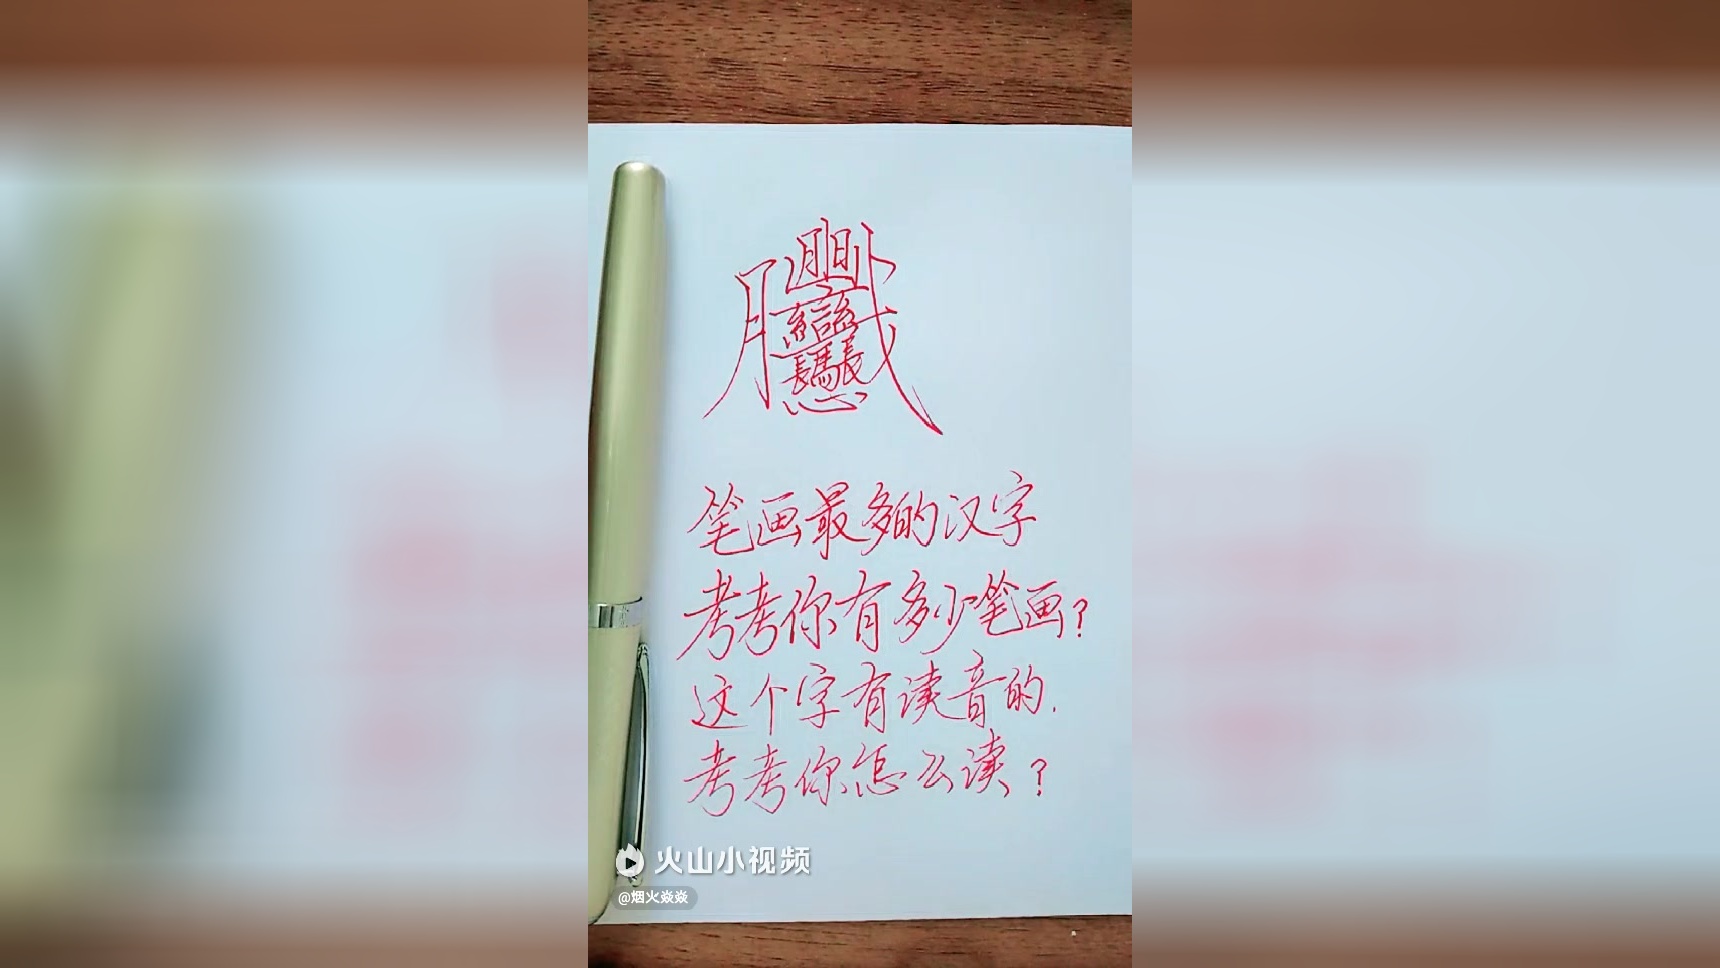 笔画最多的汉字
考考你有多少笔画?
这个字有读音的.
考考你怎么读?
火山小视频
@烟火焱焱